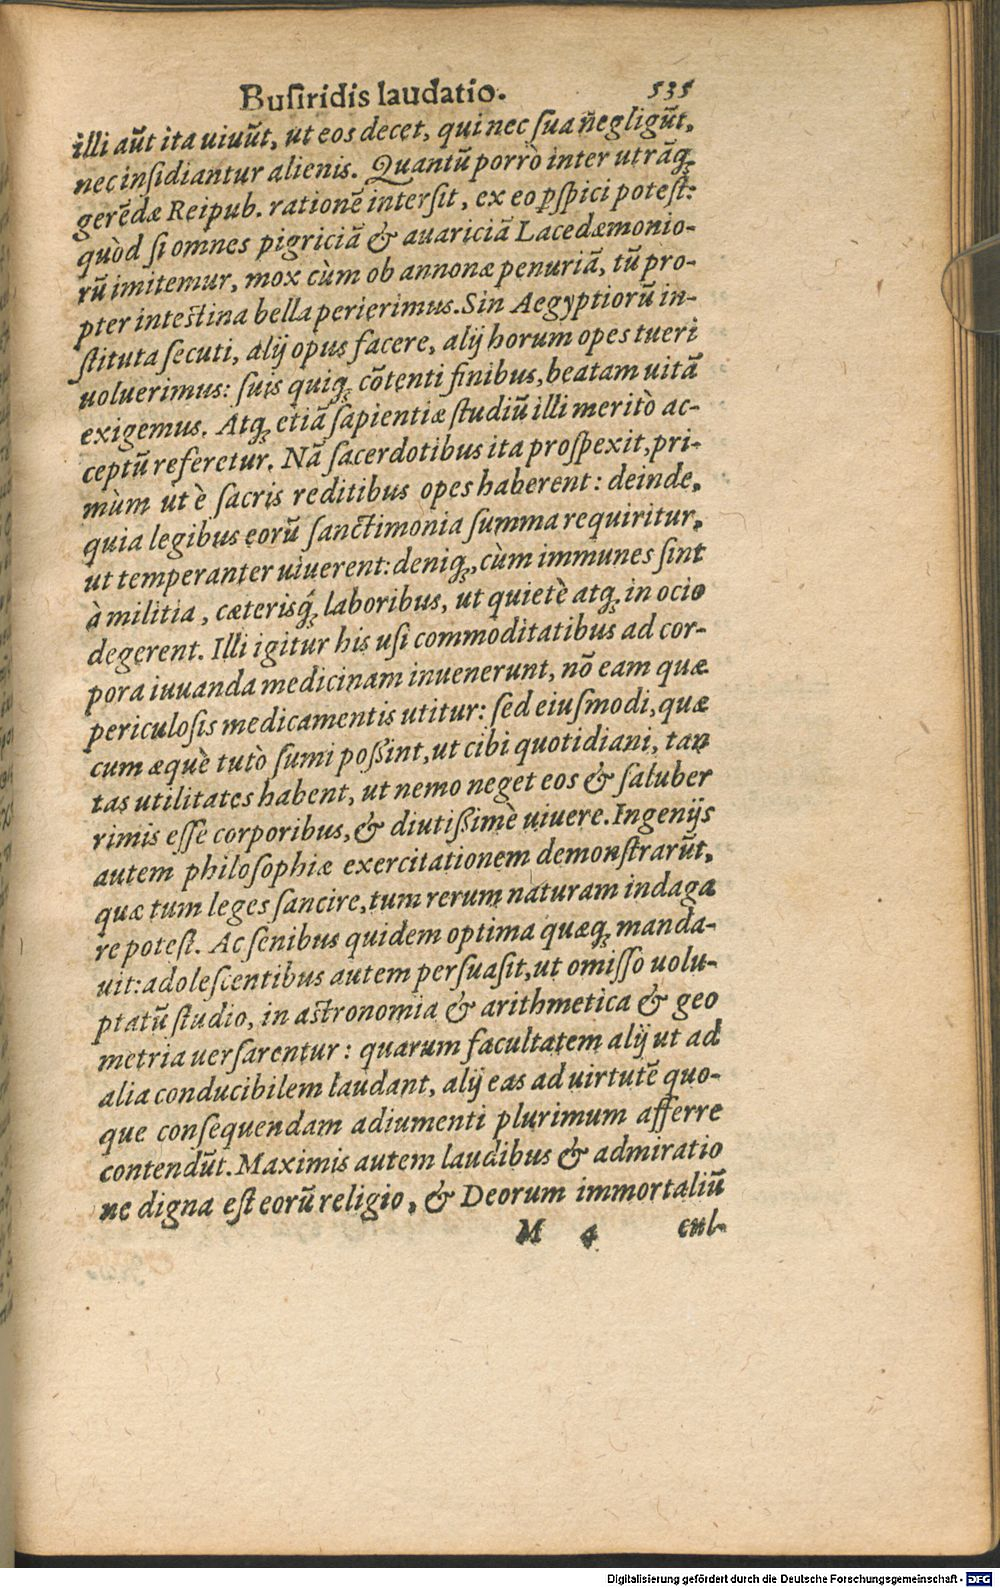 Buſiridis laudatio. 535
illi aūt ita uiuūt, ut eos decet, qui nec ſua ñegligūt,
nec inſidiantur alienis. Quantū porrò inter utrāq;
gerēdæ Reipub. rationē interſit, ex eo ꝑſpici poteſt:
quòd ſi omnes pigriciā & auariciā Lacedæmonio-
rū imitemur, mox cùm ob annonæ penuriā, tū pro-
pter inteſtina bella perierimus. Sin Aegyptiorū in-
ſtituta ſecuti, alij opus facere, alij horum opes tueri
uoluerimus: ſuis quiq; cōtenti finibus, beatam uitā
exigemus. Atq; etiā ſapientiæ ſtudiū illi meritò ac-
ceptū referetur. Nā ſacerdotibus ita proſpexit, pri-
mùm ut è ſacris reditibus opes haberent: deinde,
quia legibus eorū ſanctimonia ſumma requiritur,
ut temperanter uiuerent: deniq;, cùm immunes ſint
à militia, cæterisq́; laboribus, ut quietè atq; in ocio
degerent. Illi igitur his uſi commoditatibus ad cor-
pora iuuanda medicinam inuenerunt, nō eam quæ
periculoſis medicamentis utitur: ſed eiuſmodi, quæ
cum æquè tutò ſumi poßint, ut cibi quotidiani, tan
tas utilitates habent, ut nemo neget eos & ſaluber
rimis eſſe corporibus, & diutißimè uiuere. Ingenijs
autem philoſophiæ exercitationem demonſtrarūt,
quæ tum leges ſancire, tum rerum naturam indaga
re poteſt. Ac ſenibus quidem optima quæq; manda-
uit: adoleſcentibus autem perſuaſit, ut omiſſo uolu-
ptatū ſtudio, in aſtronomia & arithmetica & geo
metria uerſarentur: quarum facultatem alij ut ad
alia conducibilem laudant, alij eas ad uirtutē quo-
que conſequendam adiumenti plurimum afferre
contendūt. Maximis autem laudibus & admiratio
ne digna eſt eorū religio, & Deorum immortaliū
M 4 cul-
Digitalisierung gefördert durch die Deutsche Forschungsgemeinschaft - DFG